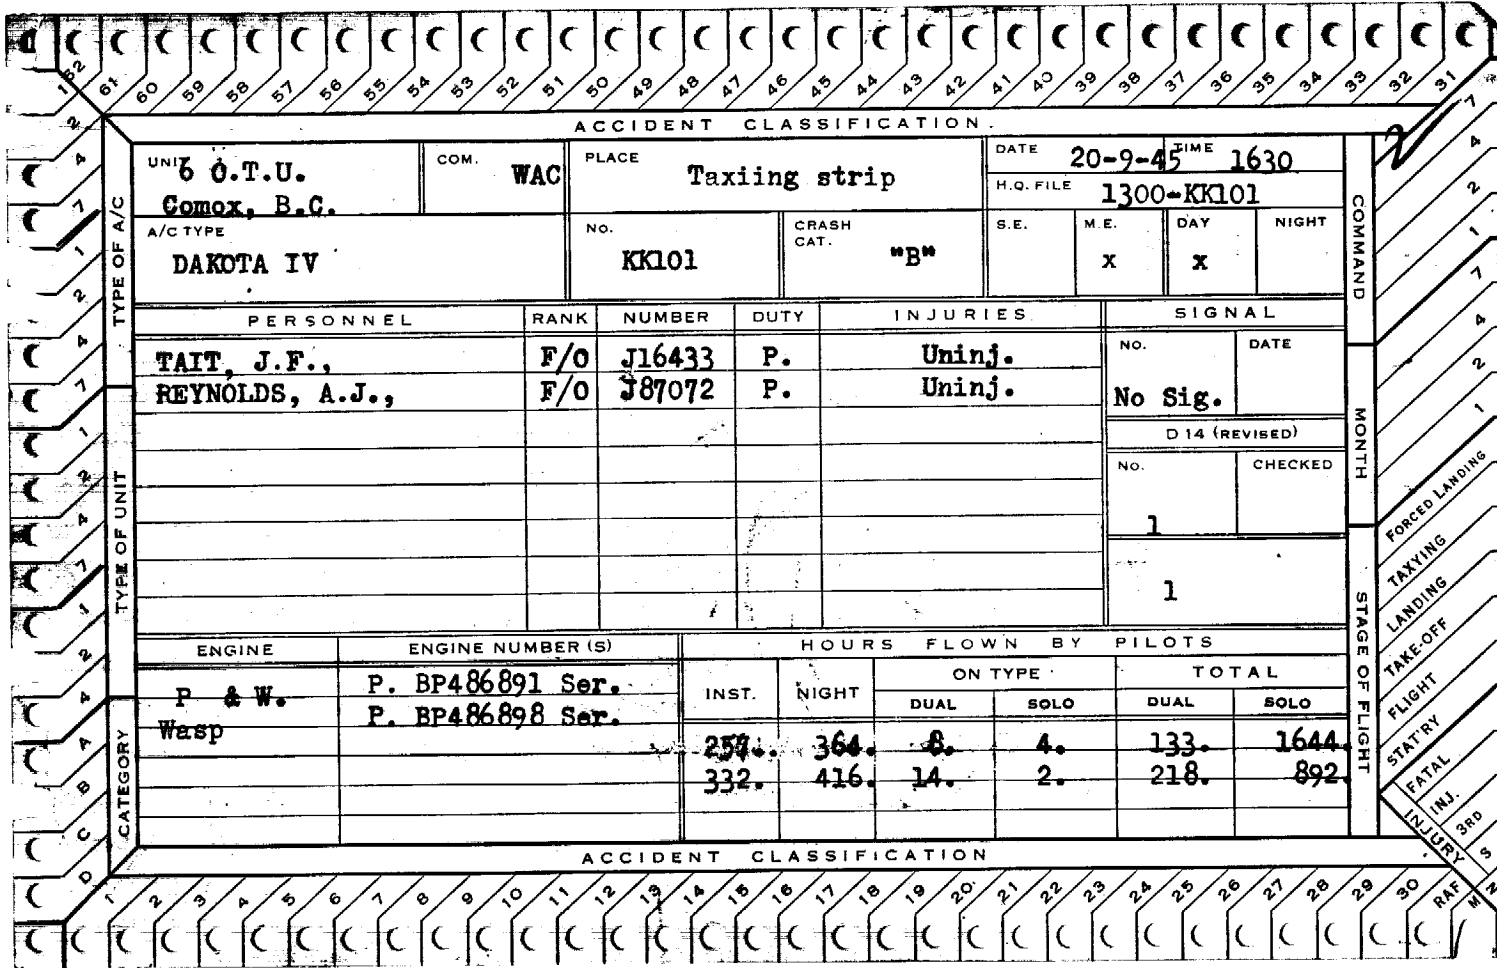 62 61 60 59 58 57 56 55 54 53 52 51 50 49 48 47 46 45 44 43 42 41 40 39 38 37 36 35 34 33 32 31
ACCIDENT CLASSIFICATION.
UNIT 6 O.T.U.
Comox, B.C.
COM. WAC
PLACE Taxiing strip
DATE 20-9-45 TIME 1630
H.Q. FILE 1300-KK101
A/C TYPE
DAKOTA IV
No.
KK101
CRASH
CAT. "B"
S.E. M.E. DAY NIGHT
x x
PERSONNEL RANK NUMBER DUTY INJURIES SIGNAL
TAIT, J.F., F/O J16433 P. Uninj.
REYNOLDS, A.J., F/O J87072 P. Uninj.
No. DATE
No Sig.
D 14 (REVISED)
No. CHECKED
1
1
ENGINE ENGINE NUMBER (S) HOURS FLOWN BY PILOTS
P & W. P. BP486891 Ser.
Wasp P. BP486898 Ser.
INST. NIGHT ON TYPE TOTAL
DUAL SOLO DUAL SOLO
364. 8. 4. 133. 1644.
332. 416. 14. 2. 218. 892.
ACCIDENT CLASSIFICATION
1 2 3 4 5 6 7 8 9 10 11 12 13 14 15 16 17 18 19 20 21 22 23 24 25 26 27 28 29 30 RAF M N
TYPE OF A/C
TYPE OF UNIT
CATEGORY
1 2 4 7 1 2 4 7 1 2 4 7 1 2 4 A B C D
COMMAND
MONTH
STAGE OF FLIGHT
7 4 2 1 7 4 2 1
FORCED LANDING
TAXYING
LANDING
TAKE-OFF
FLIGHT
STAT'RY
FATAL
INJ.
3RD
S
INJURY